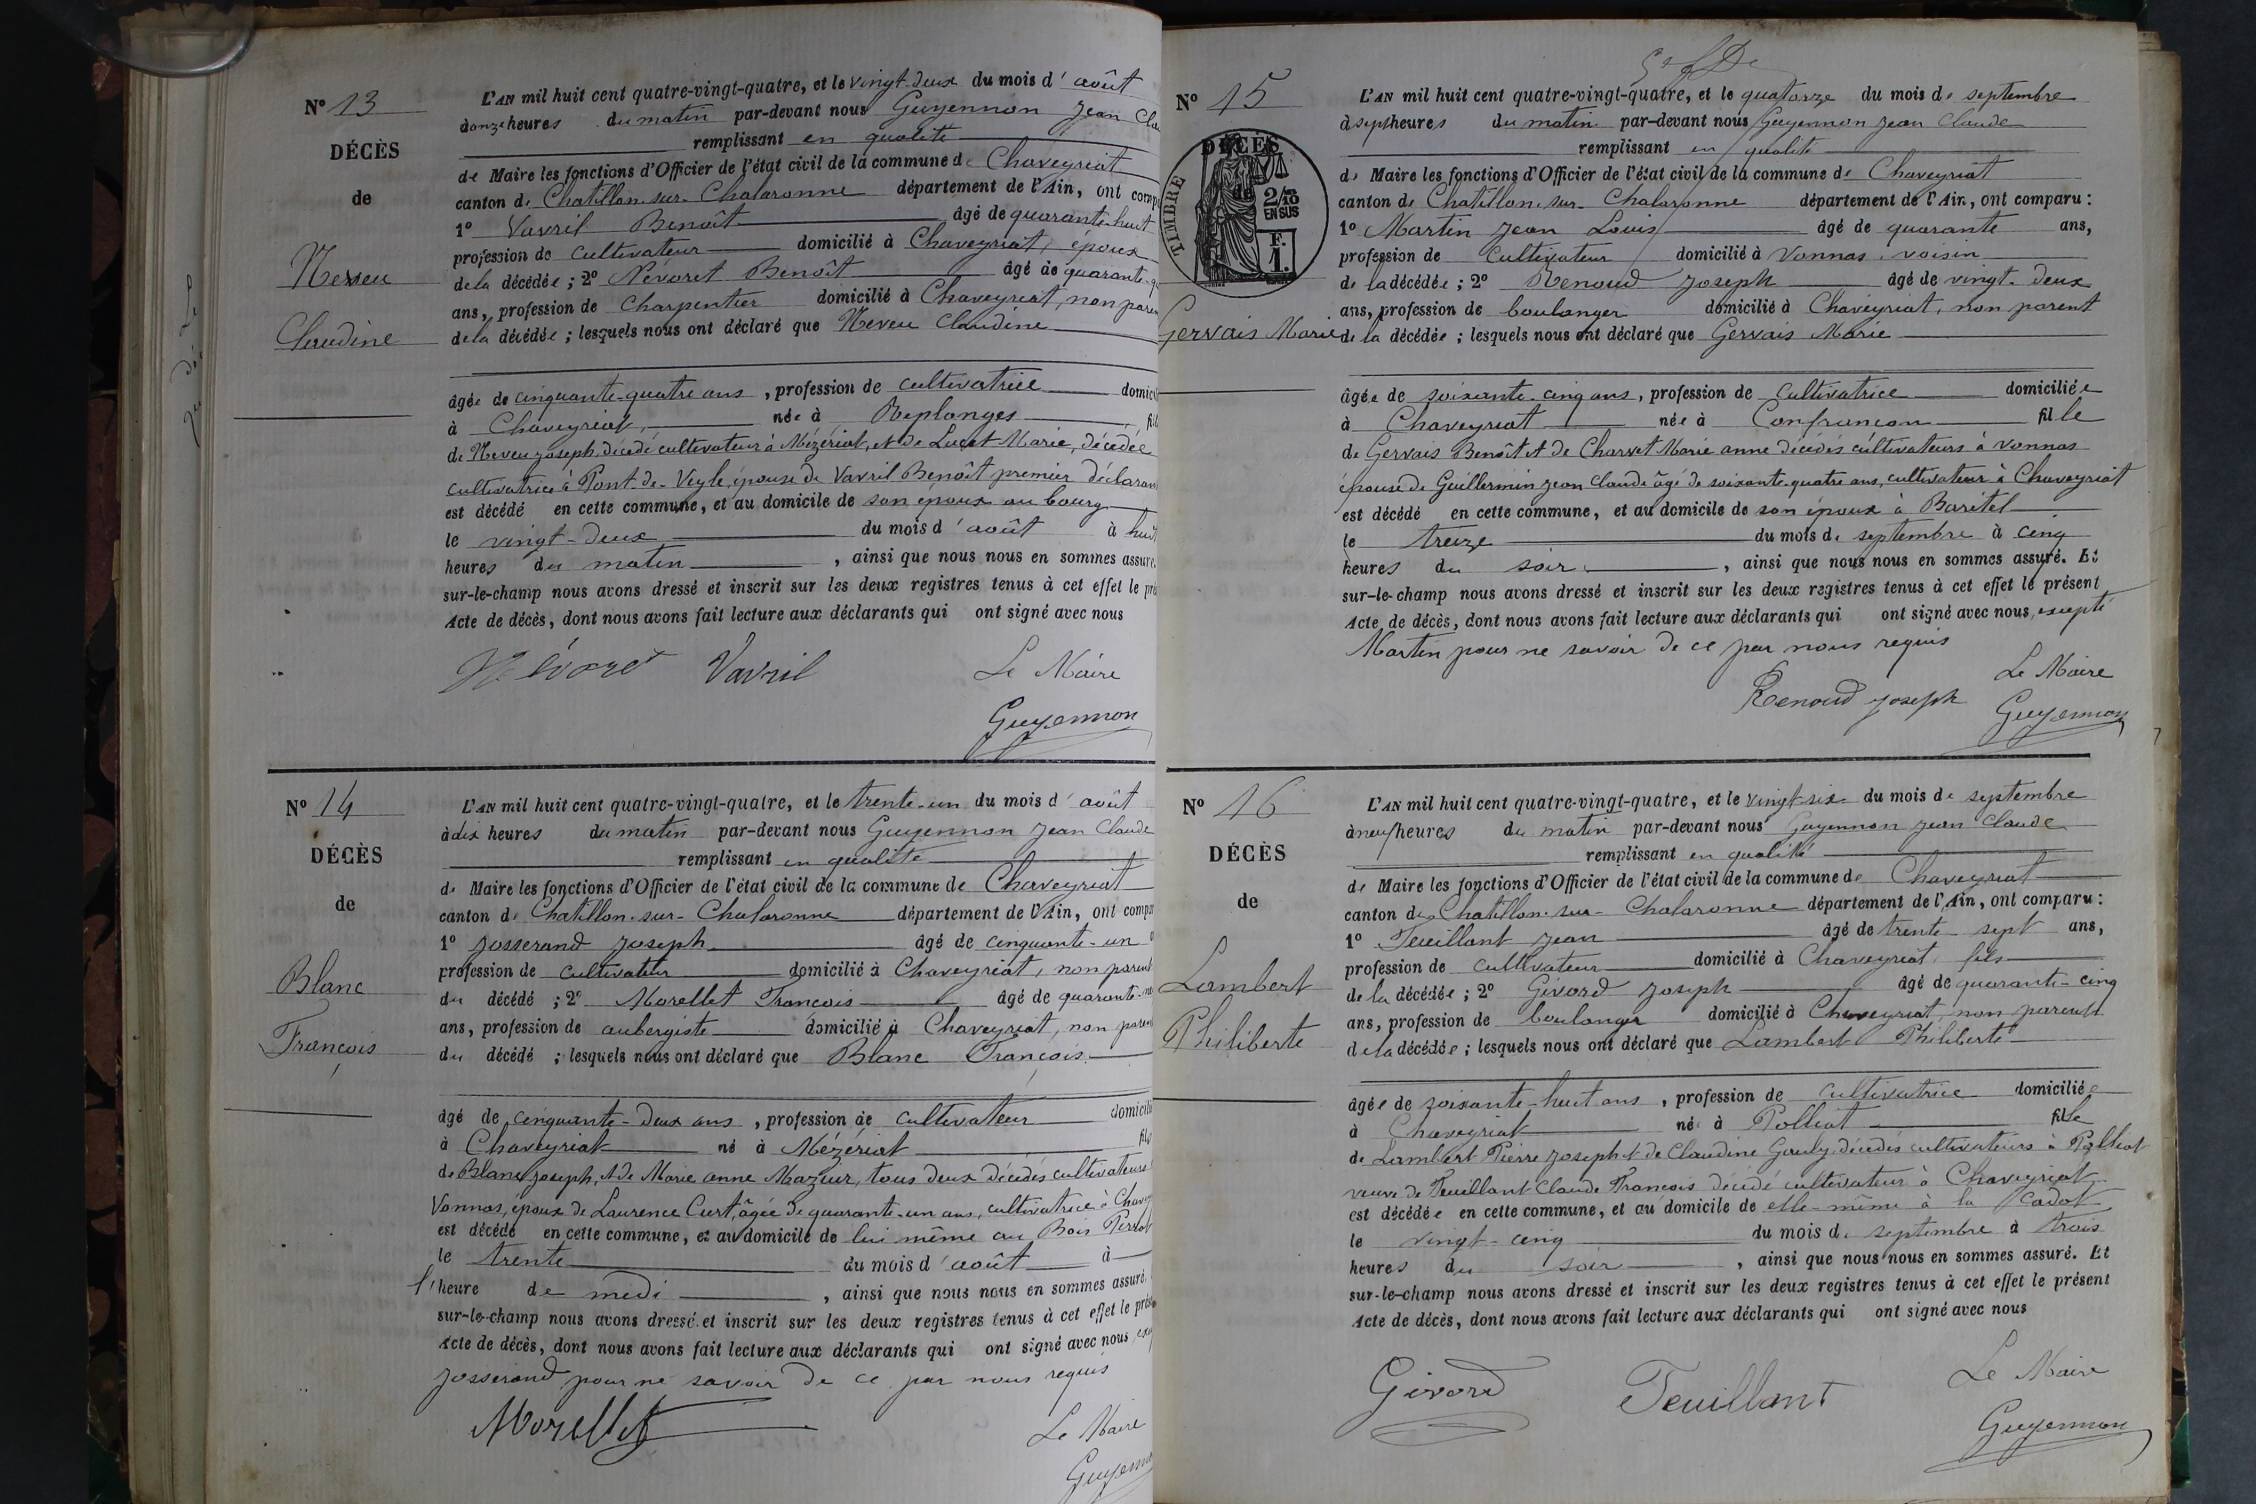 N° 13
DÉCÈS
de
Neveu
Claudine
L'AN mil huit cent quatre-vingt-quatre, et le vingt-deux du mois d'août
à onze heures du matin par-devant nous Guyennon Jean Clau
remplissant en qualité
de Maire les fonctions d'Officier de l'état civil de la commune de Chaveyriat
canton de Chatillon-sur-Chalaronne département de l'Ain, ont comp
1° Vavril Benoît âgé de quarante-huit
profession de cultivateur domicilié à Chaveyriat, époux
de la décédée ; 2° Nevoret Benoît âgé de quarante-
ans, profession de charpentier domicilié à Chaveyriat, non paren
de la décédée ; lesquels nous ont déclaré que Neveu Claudine
âgée de cinquante-quatre ans, profession de cultivatrice domici
à Chaveyriat, née à Replonges fil
de Neveu Joseph, décédé cultivateur à Mézériat, et de Lucet Marie, décédée
cultivatrice à Pont-de-Veyle, épouse de Vavril Benoît premier déclaran
est décédé en cette commune, et au domicile de son époux au bourg
le vingt-deux du mois d'août à huit
heures du matin, ainsi que nous nous en sommes assuré.
sur-le-champ nous avons dressé et inscrit sur les deux registres tenus à cet effet le pré
Acte de décès, dont nous avons fait lecture aux déclarants qui ont signé avec nous
Névoret Vavril Le Maire
Guyennon
N° 14
DÉCÈS
de
Blanc
François
L'AN mil huit cent quatre-vingt-quatre, et le trente-un du mois d'août
à dix heures du matin par-devant nous Guyennon Jean Claude
remplissant en qualité
de Maire les fonctions d'Officier de l'état civil de la commune de Chaveyriat
canton de Chatillon-sur-Chalaronne département de l'Ain, ont compa
1° Josserand Joseph âgé de cinquante-un
profession de cultivateur domicilié à Chaveyriat, non parent
du décédé ; 2° Morellet François âgé de quarante-
ans, profession de aubergiste domicilié à Chaveyriat, non paren
du décédé ; lesquels nous ont déclaré que Blanc François
âgé de cinquante-deux ans, profession de cultivateur domicili
à Chaveyriat né à Mézériat fils
de Blanc Joseph, et de Marie anne Mazuir, tous deux décédés cultivateurs
Vonnas, époux de Laurence Curt, âgée de quarante-un ans, cultivatrice à Chavey
est décédé en cette commune, et au domicile de lui même au Bois
le trente du mois d'août à
l'heure de midi, ainsi que nous nous en sommes assuré.
sur-le-champ nous avons dressé et inscrit sur les deux registres tenus à cet effet le prése
Acte de décès, dont nous avons fait lecture aux déclarants qui ont signé avec nous, exc
Josserand pour ne savoir de ce par nous requis
Morellet Le Maire
Guyenn
N° 15
DÉCÈS
de
TIMBRE
2/10
EN SUS
F.
1.
Gervais Marie
L'AN mil huit cent quatre-vingt-quatre, et le quatorze du mois de septembre
à sept heures du matin par-devant nous Guyennon Jean Claude
remplissant en qualité
de Maire les fonctions d'Officier de l'état civil de la commune de Chaveyriat
canton de Chatillon-sur-Chalaronne département de l'Ain, ont comparu :
1° Martin Jean Louis âgé de quarante ans,
profession de cultivateur domicilié à Vonnas, voisin
de la décédée ; 2° Renoud Joseph âgé de vingt-deux
ans, profession de boulanger domicilié à Chaveyriat, non parent
de la décédée ; lesquels nous ont déclaré que Gervais Marie
âgée de soixante-cinq ans, profession de cultivatrice domiciliée
à Chaveyriat née à Confrançon fille
de Gervais Benoît et de Charvet Marie anne décédés cultivateurs à Vonnas
épouse de Guillermin Jean Claude âgé de soixante-quatre ans, cultivateur à Chaveyriat
est décédé en cette commune, et au domicile de son époux à Baritel
le treize du mois de septembre à cinq
heures du soir, ainsi que nous nous en sommes assuré. Et
sur-le-champ nous avons dressé et inscrit sur les deux registres tenus à cet effet le présent
Acte de décès, dont nous avons fait lecture aux déclarants qui ont signé avec nous, excepté
Martin pour ne savoir de ce par nous requis
Le Maire
Renoud Joseph Guyennon
N° 16
DÉCÈS
de
Lambert
Philiberte
L'AN mil huit cent quatre-vingt-quatre, et le vingt-six du mois de septembre
à neuf heures du matin par-devant nous Guyennon Jean Claude
remplissant en qualité
de Maire les fonctions d'Officier de l'état civil de la commune de Chaveyriat
canton de Chatillon-sur-Chalaronne département de l'Ain, ont comparu :
1° Feuillant Jean âgé de trente-sept ans,
profession de cultivateur domicilié à Chaveyriat, fils
de la décédée ; 2° Givord Joseph âgé de quarante-cinq
ans, profession de boulanger domicilié à Chaveyriat, non parent
de la décédée ; lesquels nous ont déclaré que Lambert Philiberte
âgée de soixante-huit ans, profession de cultivatrice domiciliée
à Chaveyriat née à Polliat fille
de Lambert Pierre Joseph et de Claudine Gouly, décédés cultivateurs à Polliat
veuve de Feuillant Claude François décédé cultivateur à Chaveyriat
est décédée en cette commune, et au domicile de elle-même à la Cadot
le vingt-cinq du mois de septembre à trois
heures du soir, ainsi que nous nous en sommes assuré. Et
sur-le-champ nous avons dressé et inscrit sur les deux registres tenus à cet effet le présent
Acte de décès, dont nous avons fait lecture aux déclarants qui ont signé avec nous
Givord Feuillant Le Maire
Guyennon